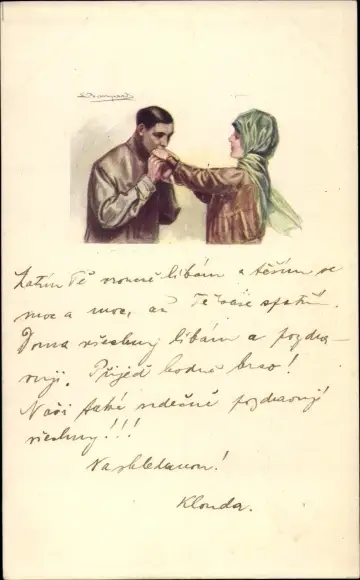 Zatím Tě vroucně líbám a těším se
moc a moc, až Tě zase spatřím.
Doma všechny líbám a pozdra-
vuji. Přijeď hodně brzo!
Naši také srdečně pozdravují
všechny!!!
Nashledanou!
Klouda.